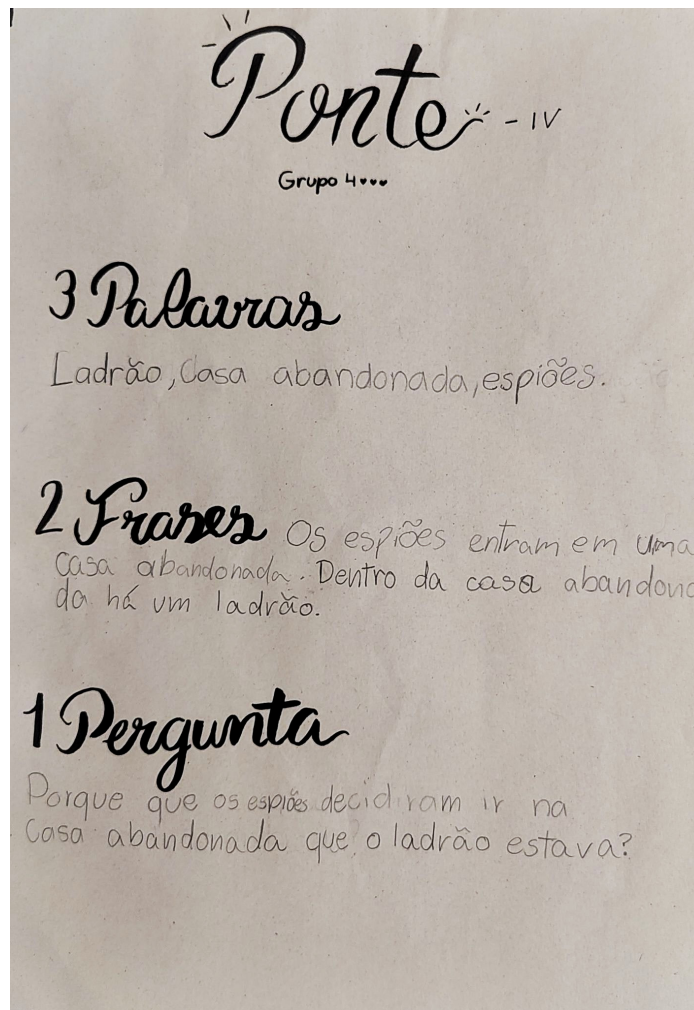 Ponte - IV
Grupo 4♥♥♥
3 Palavras
Ladrão, Casa abandonada, espiões.
2 Frases Os espiões entram em uma
casa abandonada. Dentro da casa abandona
da há um ladrão.
1 Pergunta
Porque que os espiões decidiram ir na
Casa abandonada que o ladrão estava?